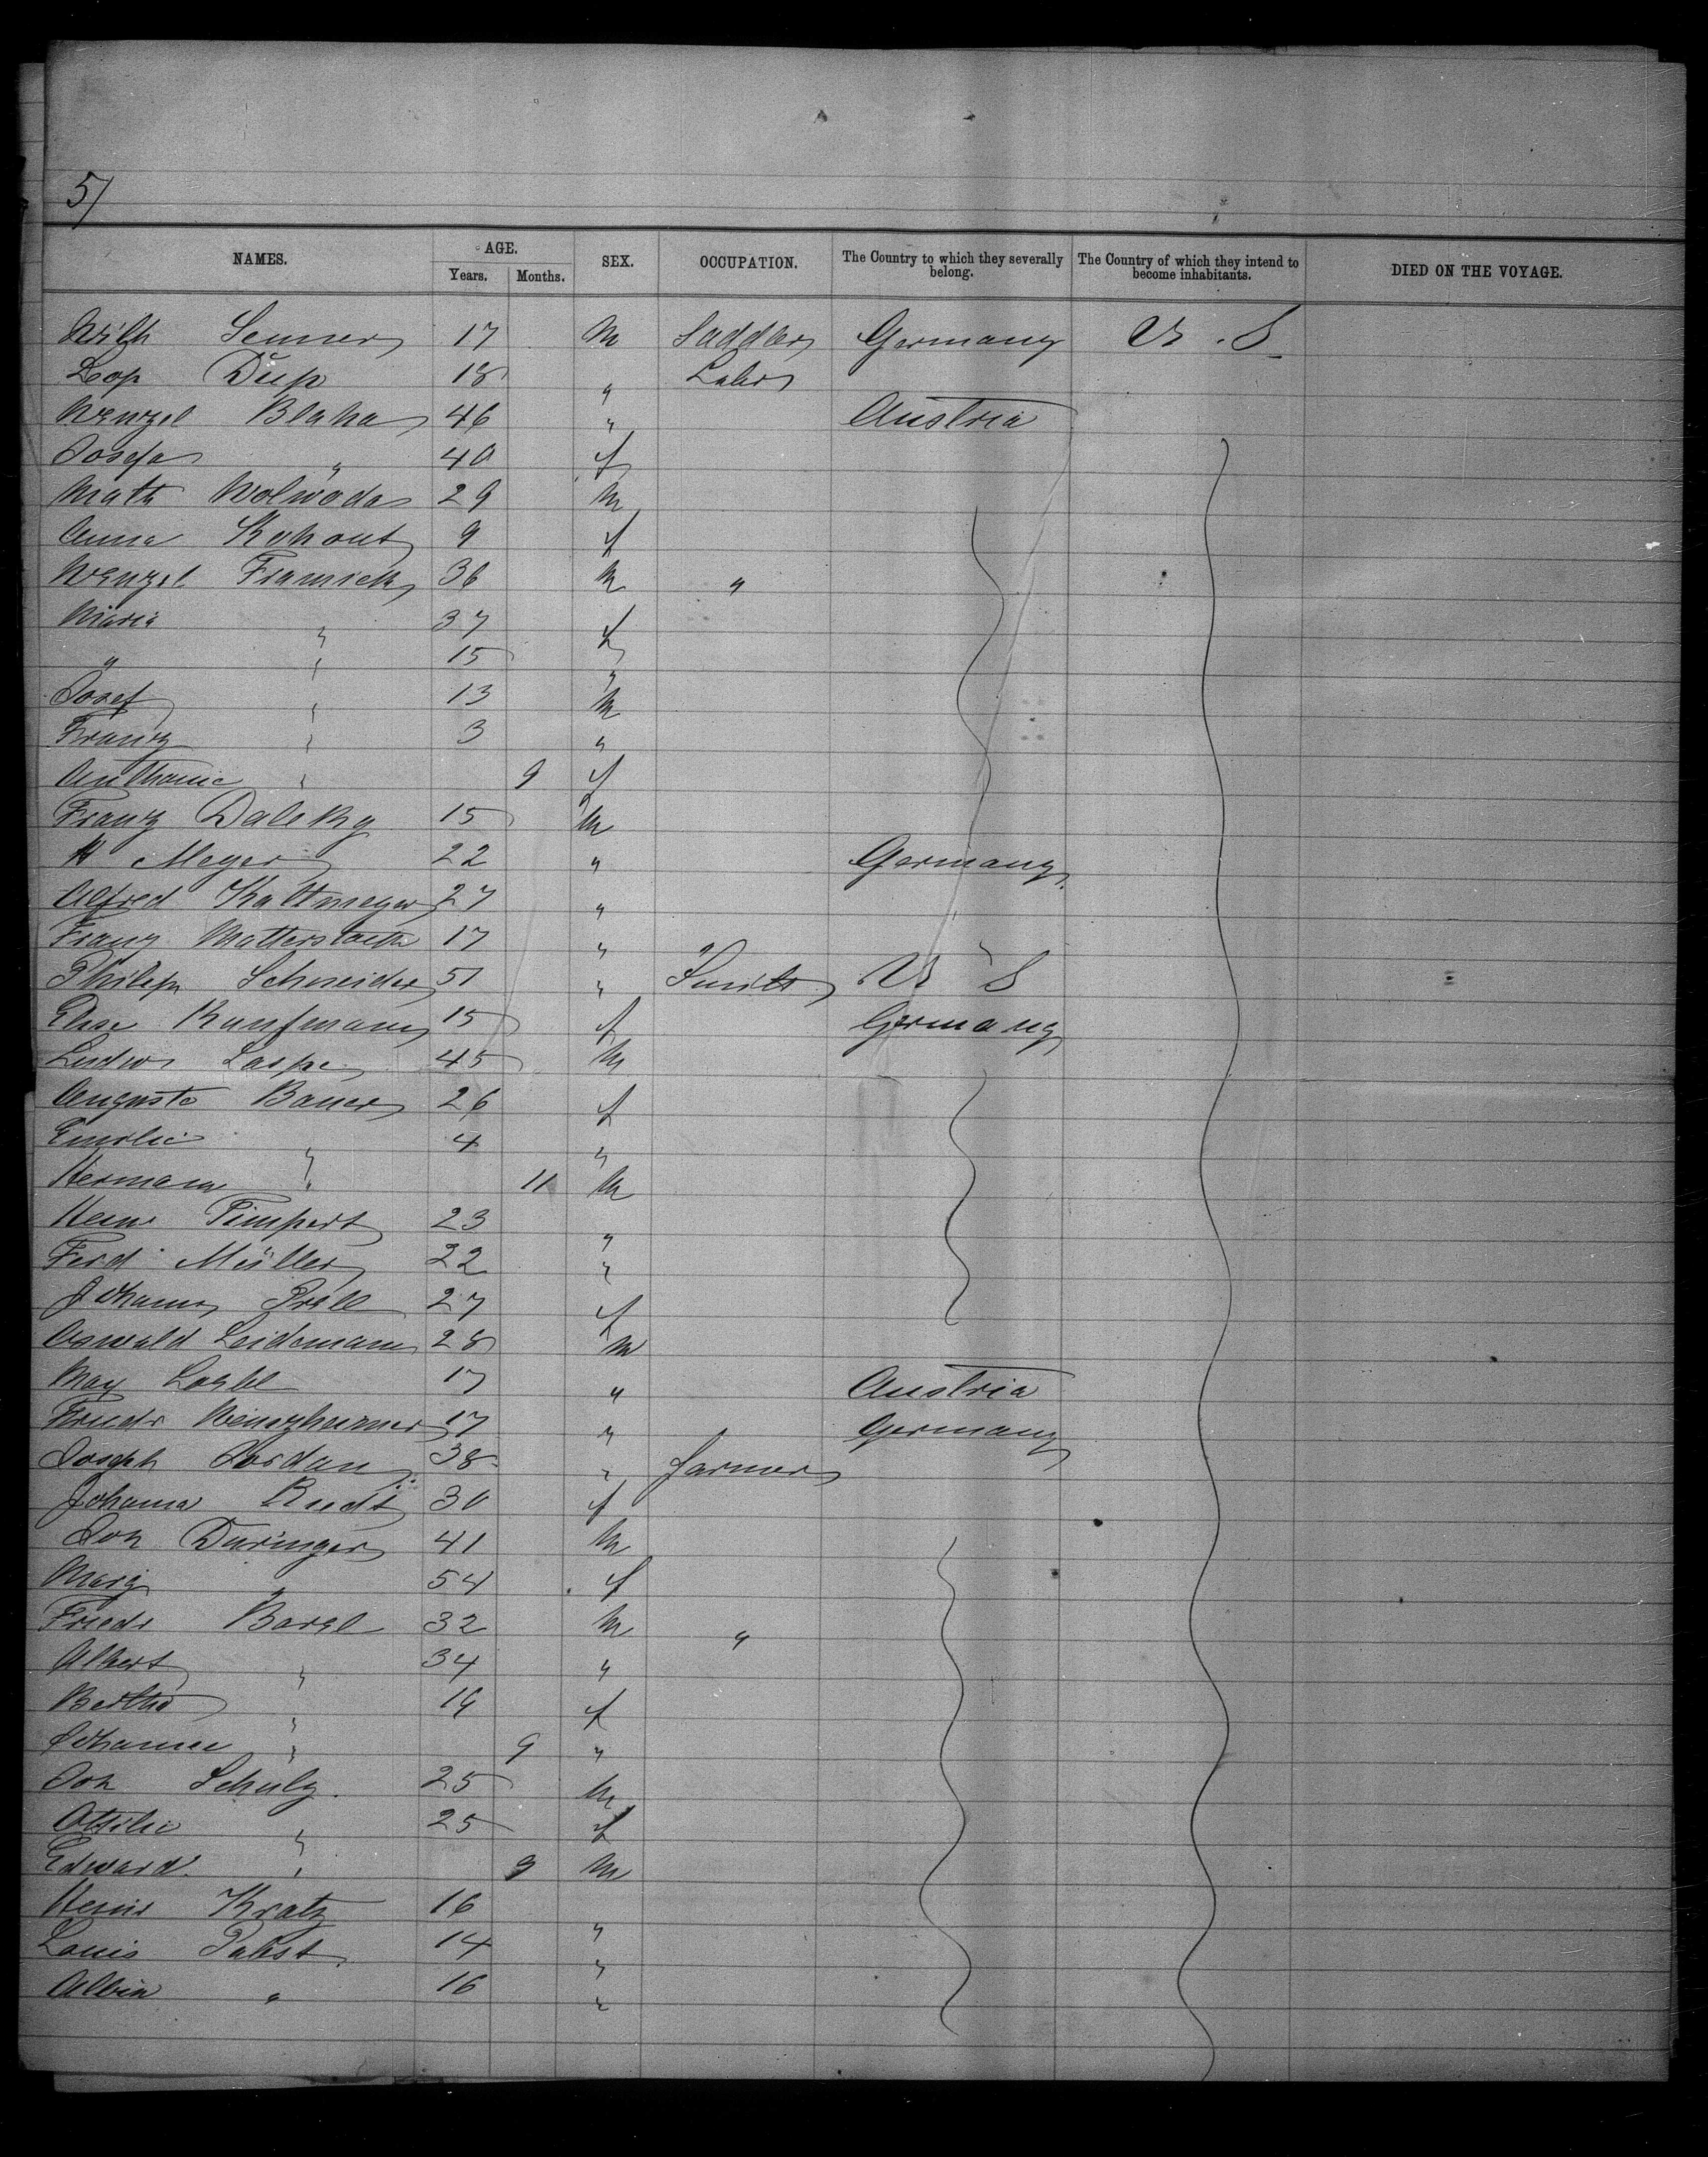 5/
NAMES. AGE. SEX. OCCUPATION. The Country to which they severally belong. The Country of which they intend to become inhabitants. DIED ON THE VOYAGE.
Years. Months.
Wilh 17 M Saddler Germany U.S
Leop 18 " Labr
Wenzel Blaha 46 " Austria
Josefa " 40 f
Math Wolwoda 29 M
Anna Kohout 9 f
Wenzel 36 M "
Maria " 37 f
" " 15 "
Josef " 13 M
Franz " 3 "
Anthonie " 9 f
Franz Daleky 15 M
H Meyer 22 " Germany
Alfred Kaltmeyer 27 "
Franz 17 "
Philipp Schneider 51 " Smith U S
Elise Kaufmann 15 f Germany
Ludw Laspe 45 M
Auguste Bauer 26 f
Emilie " 4 "
Hermann " 11 M
Heinr Timpert 23 "
Ferd Müller 22 "
Johanna Prell 27 f
Oswald Leidemann 28 M
Max Loebl 17 " Austria
Friedr 17 " Germany
Joseph Jordan 38 " farmer
Johanna Rudt 30 f
Joh Düringer 41 M
Marg " 54 f
Friedr 32 M "
Albert " 34 "
Bertha " f
Johanne " 9 "
Joh Schulz. 25 M
Ottilie " 25 f
Edward " 9 M
Heinr Kratz 16 "
Louis Pabst 14 "
Albin " 16 "